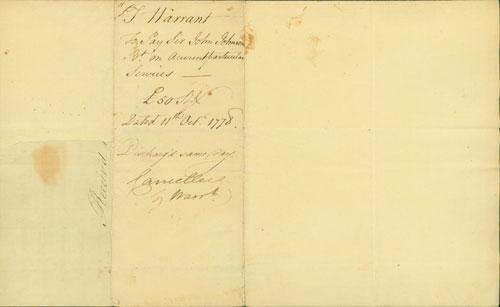 Warrant
To Pay Sir John Johnson
Bt. on Account particular
Services —
£50 Stg
Dated 11th Octr. 1778.
Discharg'd same day
by Warrt.
Received